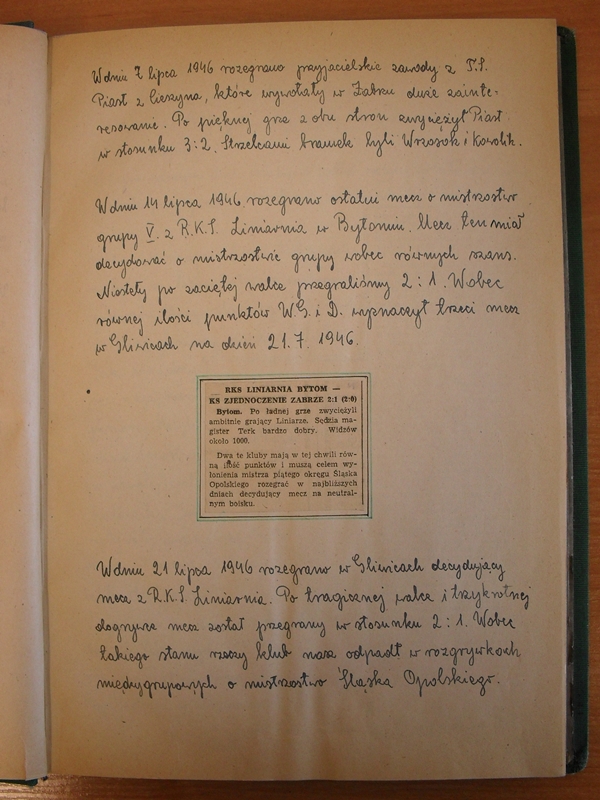 W dniu 7 lipca 1946 rozegrano przyjacielskie zawody z T.S.
Piast z Cieszyna, które wywołały w Zabrzu duże zainte-
resowanie. Po pięknej grze z obu stron zwyciężył Piast
w stosunku 3:2. Strzelcami bramek byli Wrzosok i Kowolik.
W dniu 14 lipca 1946 rozegrano ostatni mecz o mistrzostwo
grupy V. z R.K.S. Liniarnia w Bytomiu. Mecz ten miał
decydować o mistrzostwie grupy wobec równych szans.
Niestety po zaciętej walce przegraliśmy 2:1. Wobec
równej ilości punktów W.G. i D. wyznaczył trzeci mecz
w Gliwicach na dzień 21.7.1946.
RKS LINIARNIA BYTOM —
KS ZJEDNOCZENIE ZABRZE 2:1 (2:0)
Bytom. Po ładnej grze zwyciężyli
ambitnie grający Liniarze. Sędzia ma-
gister Terk bardzo dobry. Widzów
około 1000.
Dwa te kluby mają w tej chwili rów-
ną ilość punktów i muszą celem wy-
łonienia mistrza piątego okręgu Śląska
Opolskiego rozegrać w najbliższych
dniach decydujący mecz na neutral-
nym boisku.
W dniu 21 lipca 1946 rozegrano w Gliwicach decydujący
mecz z R.K.S Liniarnia. Po tragicznej walce i trzykrotnej
dogrywce mecz został przegrany w stosunku 2:1. Wobec
takiego stanu rzeczy klub nasz odpadł w rozgrywkach
międzygrupowych o mistrzostwo Śląska Opolskiego.